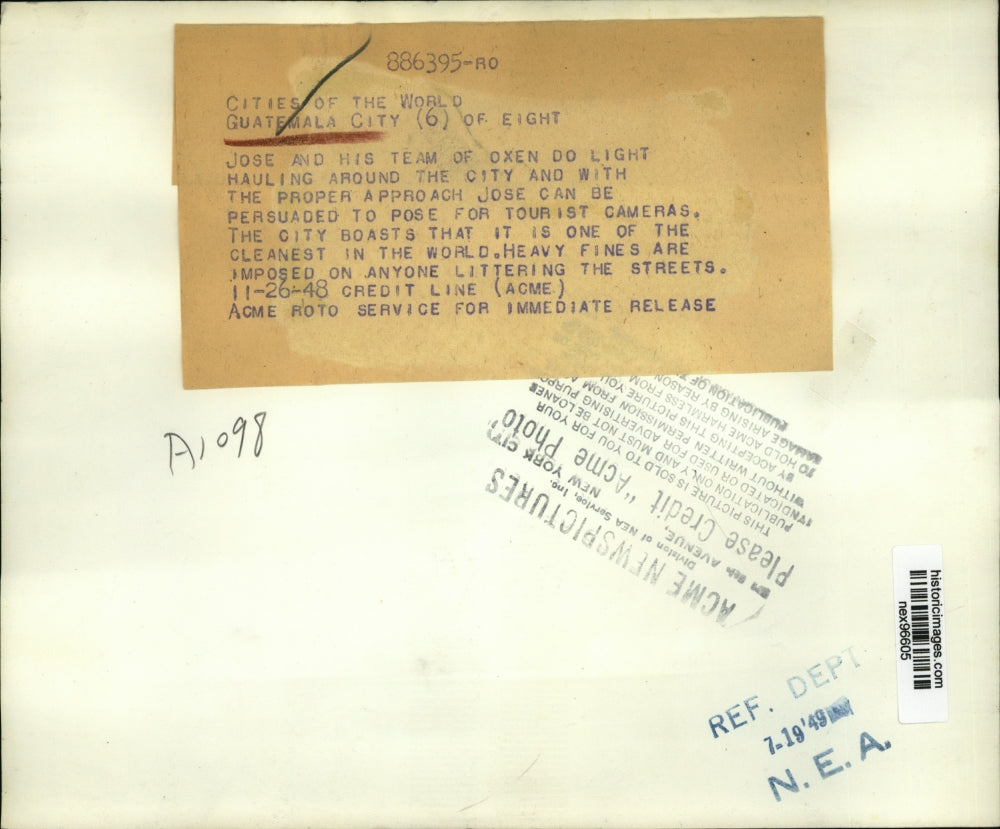 886395-RO
CITIES OF THE WORLD
GUATEMALA CITY (6) OF EIGHT
JOSE AND HIS TEAM OF OXEN DO LIGHT
HAULING AROUND THE CITY AND WITH
THE PROPER APPROACH JOSE CAN BE
PERSUADED TO POSE FOR TOURIST CAMERAS.
THE CITY BOASTS THAT IT IS ONE OF THE
CLEANEST IN THE WORLD.HEAVY FINES ARE
IMPOSED ON ANYONE LITTERING THE STREETS.
11-26-48 CREDIT LINE (ACME)
ACME ROTO SERVICE FOR IMMEDIATE RELEASE
A1098
ACME NEWSPICTURES
Division of NEA Service, Inc.
AVENUE, NEW YORK CITY
Please Credit "Acme Photo
THIS PICTURE IS SOLD TO YOU FOR YOUR
PUBLICATION ONLY AND MUST NOT BE LOANED
SYNDICATED OR USED FOR ADVERTISING
WITHOUT WRITTEN PERMISSION FROM
BY ACCEPTING THIS PICTURE YOU
TO HOLD ACME HARMLESS FROM
DAMAGE ARISING BY REASON
PUBLICATION OF
historicimages.com
nex96605
REF. DEPT
7-19'49
N.E.A.